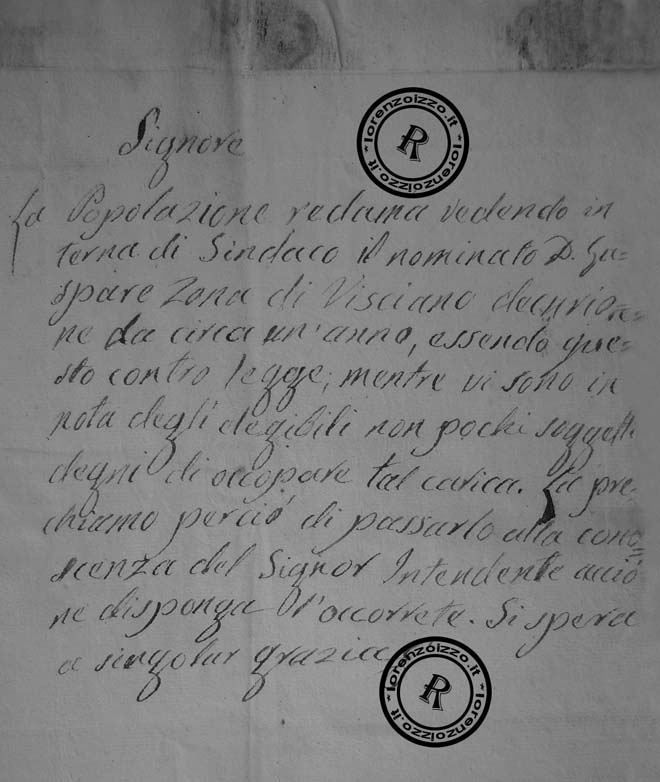 lorenzoizzo.it - lorenzoizzo.it -
R
Signore
La Popolazione reclama vedendo in
terna di Sindaco il nominato D. Ga=
spare Zona di Visciano decurio=
ne da circa un'anno, essendo que=
sto contro legge; mentre vi sono in
nota degli elegibili non pochi soggetti
degni di occopare tal carica. La pre=
chiamo perciò di passarlo alla cono=
scenza del Signor Intendente acciò
ne disponga l'occorrete. Si spera
a singolar grazia
lorenzoizzo.it - lorenzoizzo.it -
R